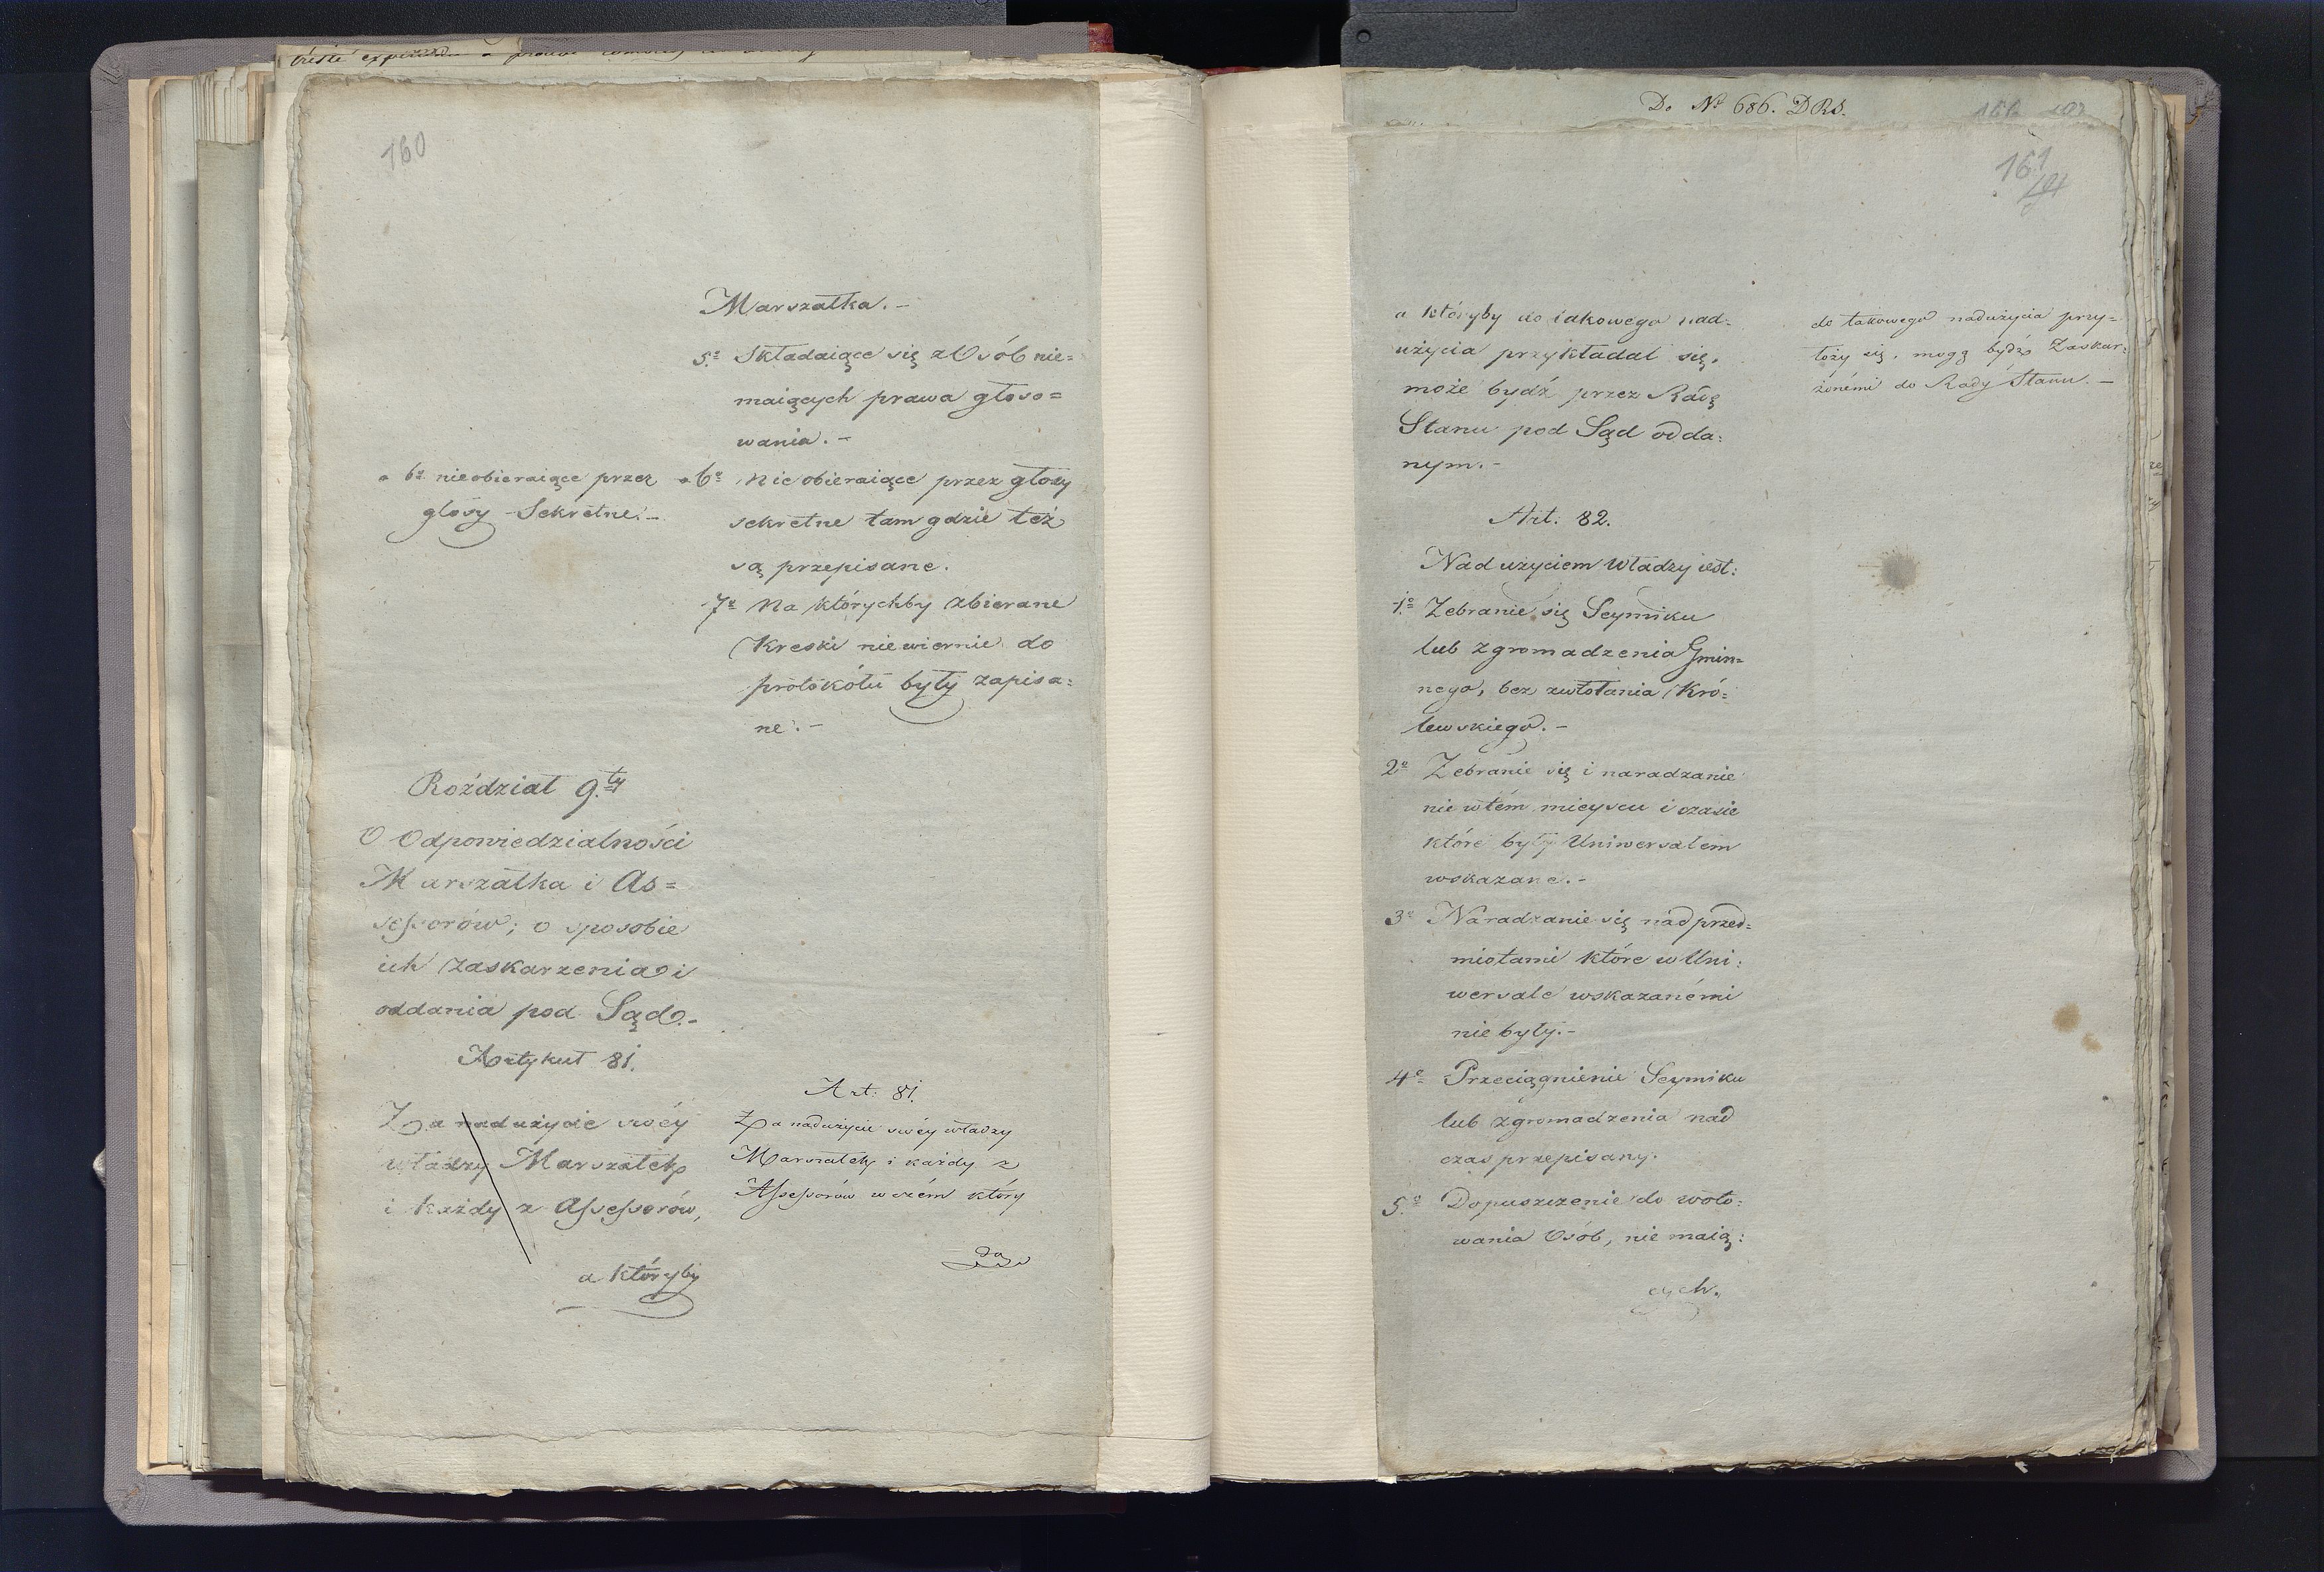 160
Marszałka. –
5º Składaiące się z Osób nie=
maiących prawa głoso=
wania. –
6º nieobieraiące przez
głosy Sekretne. –
6º Nieobieraiące przez głosy
sekretne tam gdzie też
są przepisane.
7º Na którychby zbierane
Kreski niewiernie do
protokółu były zapisa=
ne. –
Roździał 9.ty
O Odpowiedzialności
Marszałka i As=
sessorów; o sposobie
ich zaskarzenia i
oddania pod Sąd. –
Artykuł 81.
Za nadużycie swéy
władzy Marszałek
i każdy z Assessorów,
a któryby
Art: 81.
Za nadużycie swéy władzy
Marszałek i każdy z
Assessorów wszém który
do
Do Nº 686. DRS.
161
a któryby do takowego nad=
użycia przykładał się,
może bydź przez Radę
Stanu pod Sąd odda=
nym. –
do takowego nadużycia przy=
łoży się, mogą bydź Zaskar=
żonémi do Rady Stanu. –
Art: 82.
Nadużyciem Władzy iest:
1º Zebranie się Seymiku
lub zgromadzenia Gmin=
nego, bez zwołania Kró=
lewskiego. –
2º Zebranie się i naradzanie
nie wtém mieyscu i czasie
które były Uniwersałem
wskazane. –
3º Naradzanie się nad przed=
miotami które w Uni=
wersale wskazanémi
nie były. –
4º Przeciągnienie Seymiku
lub zgromadzenia nad
czas przepisany.
5º Dopuszczenie do woto=
wania Osób, nie maią=
cych.